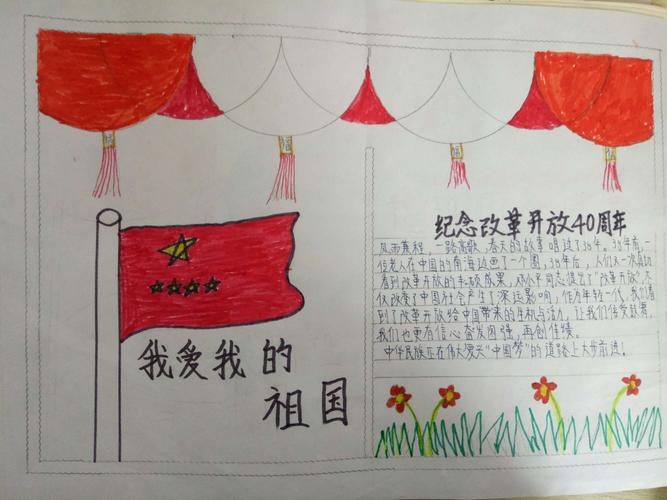 我爱我的
祖国
纪念改革开放40周年
风雨兼程,一路高歌,春天的故事唱过了38年。38年前,一
位老人在中国的南海边画了一个圈,38年后,人们又一次
看到改革开放的丰硕成果。邓小平同志提出了"改革开放",不
仅改变了中国社会产生了深远影响,作为年轻一代,我们看
到了改革开放给中国带来的生机与活力,让我们倍受鼓舞,
我们也更有信心奋发图强,再创佳绩。
中华民族正在伟大复兴"中国梦"的道路上大步前进!